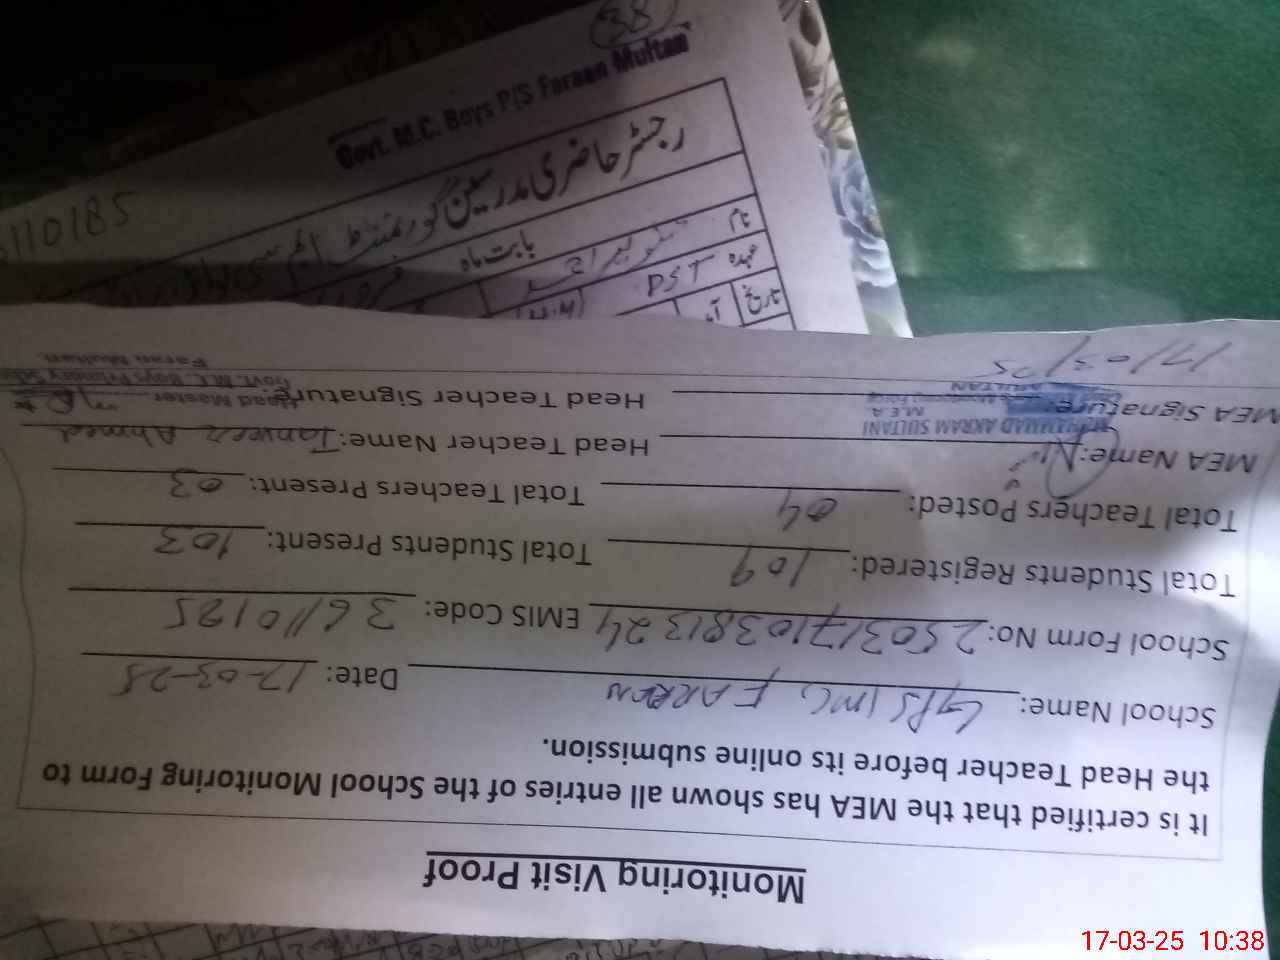 Monitoring Visit Proof
It is certified that the MEA has shown all entries of the School Monitoring Form to
the Head Teacher before its online submission.
School Name: GPS MC FARAAN Date: 17-03-25
School Form No: 25031710381324 EMIS Code: 36110185
Total Students Registered: 109 Total Students Present: 103
Total Teachers Posted: 04 Total Teachers Present: 03
MEA Name: Head Teacher Name: Tanveer Ahmed
MUHAMMAD AKRAM SULTANI
M.E.A.
MEA Signature: Head Teacher Signature:
Head Master
Govt. M.C. Boys Primary
17/03/25
38
Govt. M.C. Boys P/S Faraan Multan
110185
رجسٹر حاضری مدرسین گورنمنٹ ایم سی
بابت ماہ
نام
عہدہ PST
تاریخ
17-03-25 10:38